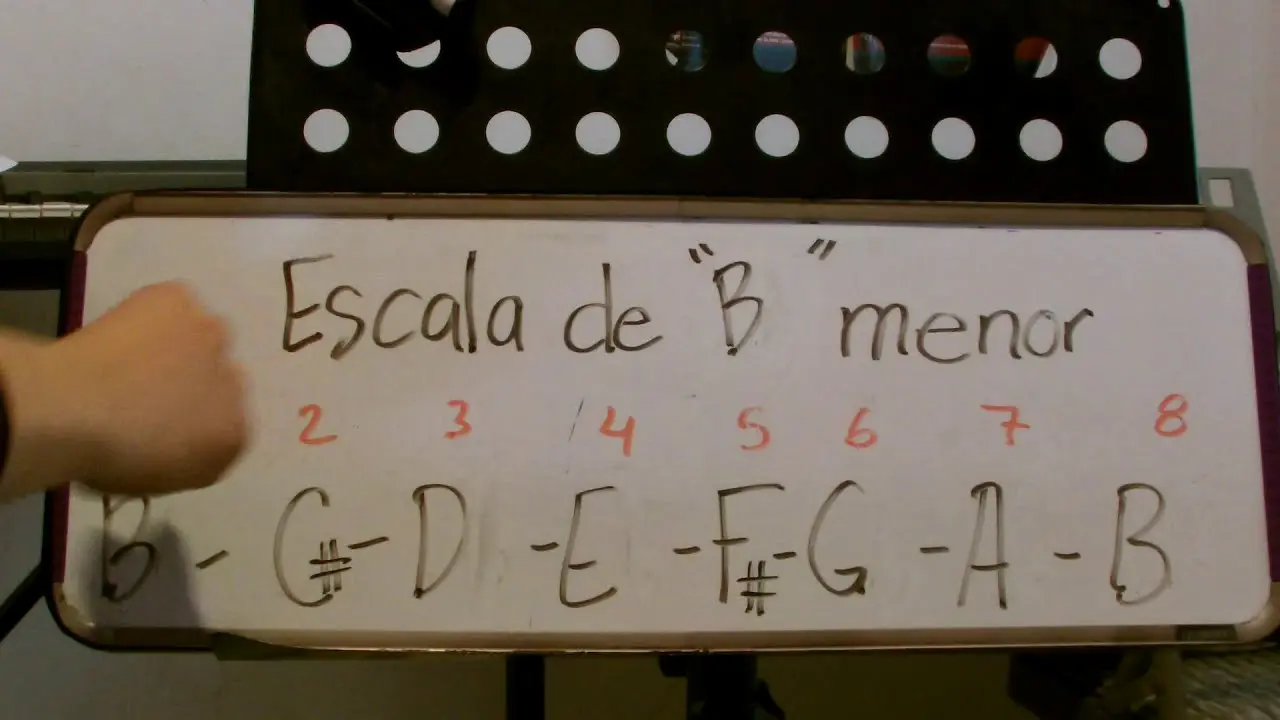 Escala de "B" menor
2 3 4 5 6 7 8
B - C# - D - E - F# - G - A - B